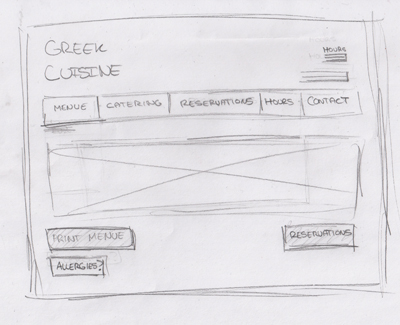 GREEK
CUISINE
HOURS
MENUE CATERING RESERVATIONS HOURS CONTACT
PRINT MENUE
RESERVATIONS
ALLERGIES?